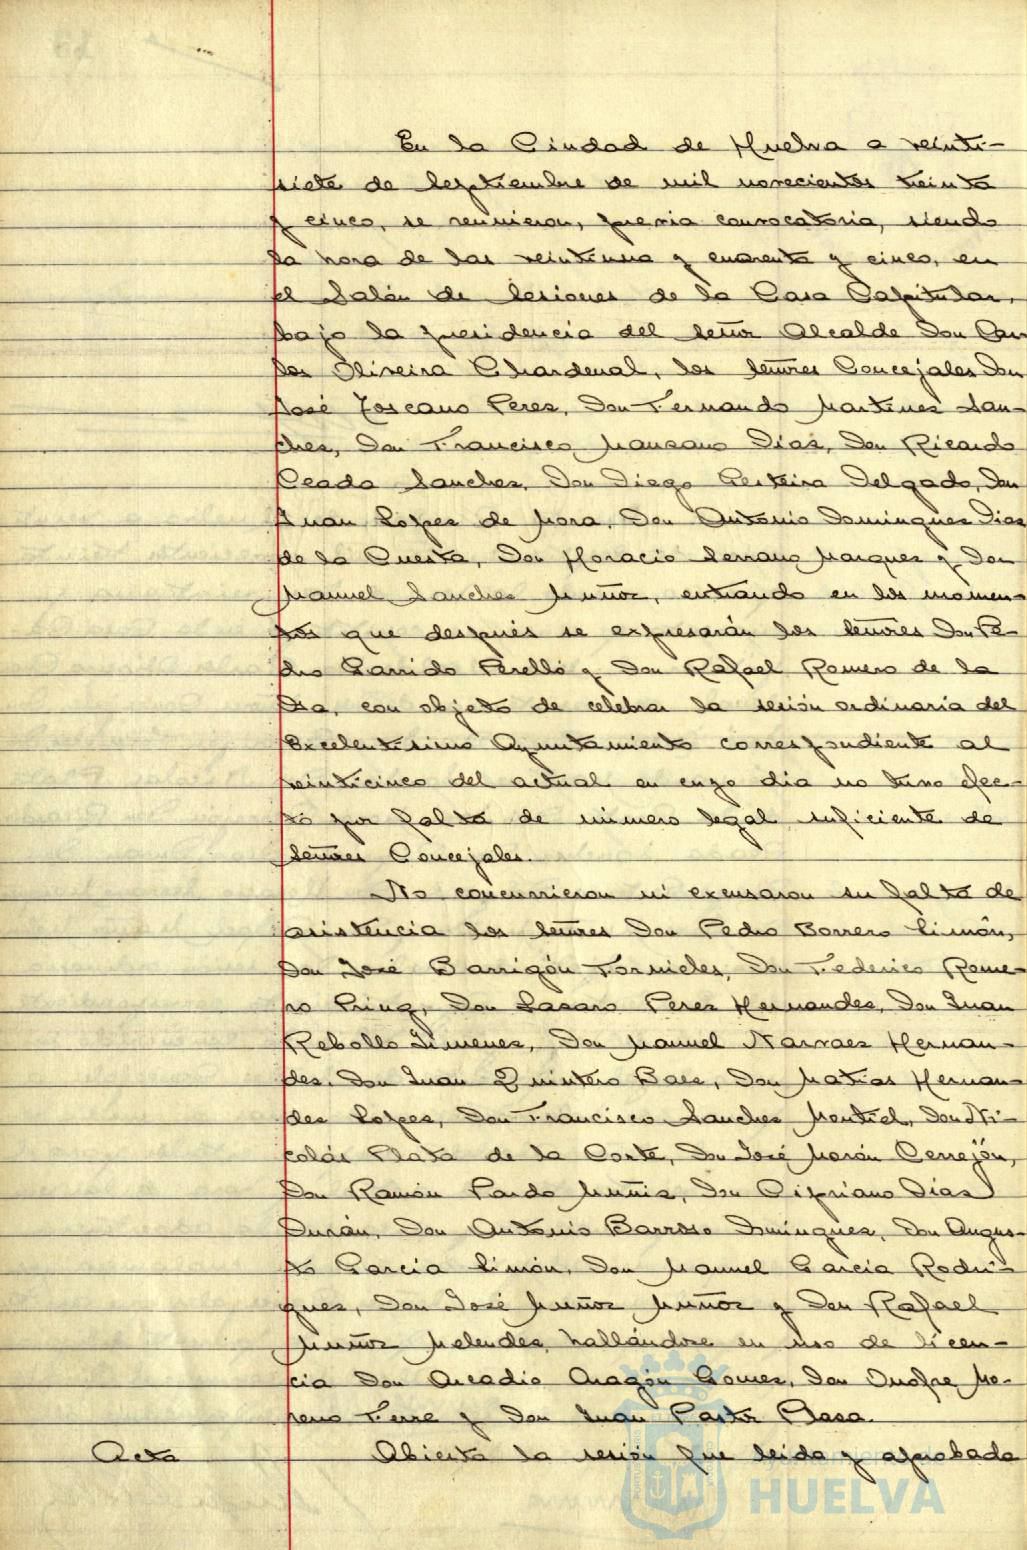 En la Ciudad de Huelva a veinti-
siete de Septiembre de mil novecientos treinta
y cinco, se reunieron, previa convocatoria, siendo
la hora de las veintiuna y cuarenta y cinco, en
el Salón de Sesiones de la Casa Capitular,
bajo la presidencia del Señor Alcalde Don Car
los Oliveira Chardenal, los Señores Concejales Don
José Toscano Peres, Don Fernando Martines San-
ches, Don Francisco Mansano Dias, Don Ricardo
Ceada Sanches, Don Diego Delgado, Don
Juan Lopes de Mora, Don Antonio Domingues Dias
de la Cuesta, Don Horacio Serrano Marques y Don
Manuel Sanches Muñoz, entrando en los momen-
tos que después se expresarán los Señores Don Pe-
dro Garrido Perelló y Don Rafael Romero de la
con objeto de celebrar la sesión ordinaria del
Excelentísimo Ayuntamiento correspondiente al
veinticinco del actual en cuyo dia no tuvo efec-
to por falta de número legal suficiente de
Señores Concejales.
No concurrieron ni excusaron su falta de
asistencia los Señores Don Pedro Borrero Limón,
Don José Barrigón Fornieles, Don Federico Rome-
ro Don Lasaro Peres Hernandes, Don Juan
Rebollo Jimenes, Don Manuel Narvaes Hernan-
des, Don Juan Quintero Baes, Don Matias Hernan
des Lopes, Don Francisco Sanches Montiel, Don Ni-
colás Plata de la Corte, Don José Marán Cerrejón,
Don Ramón Pardo Muñis, Don Cipriano Dias
Durán, Don Antonio Barroso Domingues, Don Augus-
to Garcia Limón, Don Manuel Garcia Rodri-
gues, Don José Muñoz Muñoz y Don Rafael
Muñoz Melendes, hallándose en uso de licen-
cia Don Arcadio Aragón Gomes, Don Onofre Mo-
reno Ferre y Don Juan Pastor Plasa.
Acta
Abierta la sesión fue leida y aprobada
HUELVA